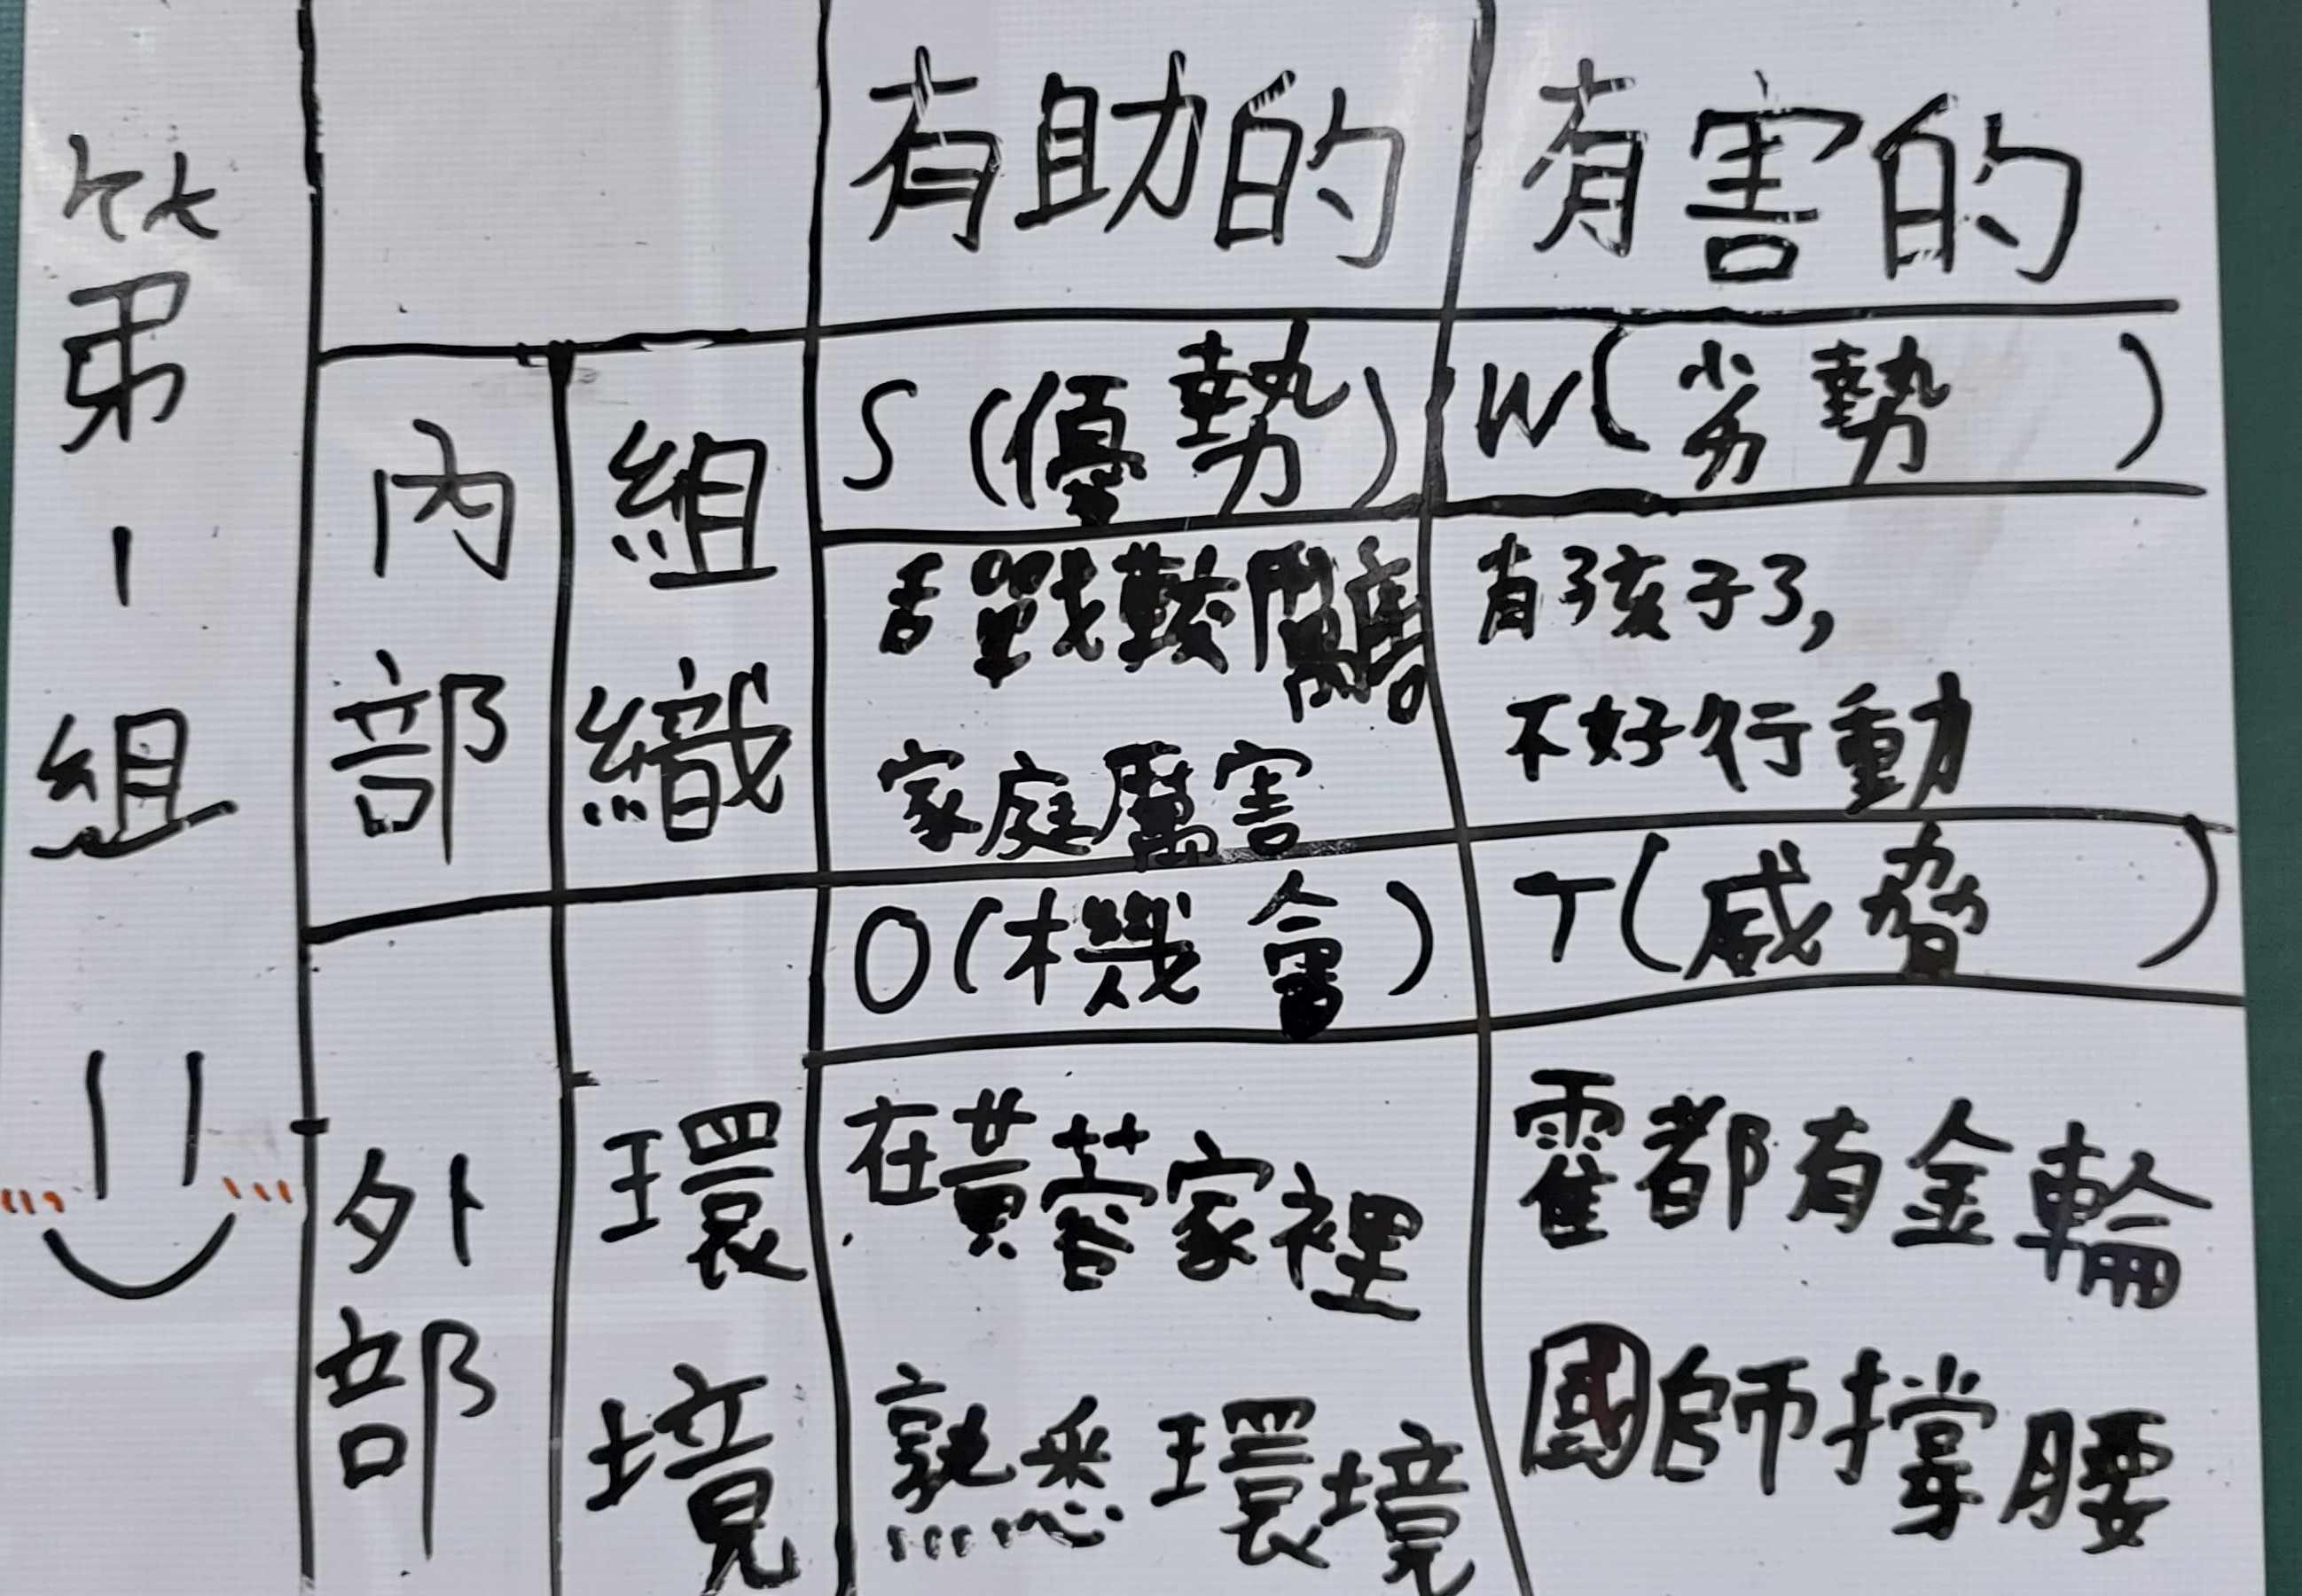 第一組
有助的 有害的
內部 組織
S(優勢) W(劣勢)
舌戰較關害 有了孩子了,
家庭厲害 不好行動
O(機會) T(威脅)
外部 環境
在黃蓉家裡 霍都有金輪
熟悉環境 國師撐腰